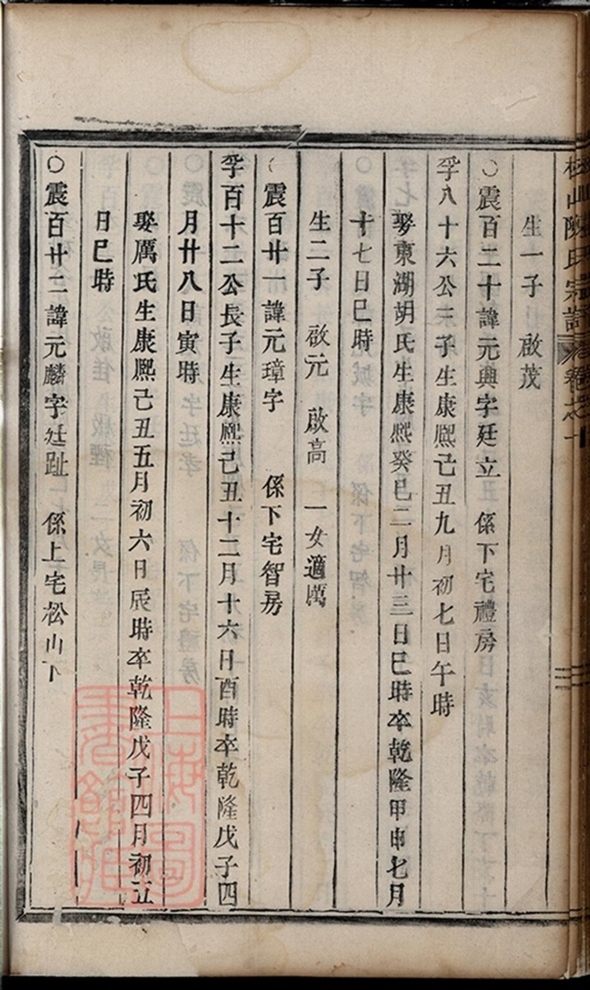 山陳氏宗譜 卷之十
生一子 啟茂
○震百二十諱元興字廷立 係下宅禮房
孚八十六公三子生康熙己丑九月初七日午時
娶東湖胡氏生康熙癸巳二月廿三日巳時卒乾隆甲申七月
十七日巳時
生二子 啟元 啟高 一女適厲
震百廿一諱元璋字 係下宅智房
孚百十二公長子生康熙己丑十二月十六日酉時卒乾隆戊子四
月廿八日寅時
娶厲氏生康熙己丑五月初六日辰時卒乾隆戊子四月初五
日巳時
○震百廿二諱元麟字廷趾 係上宅松山下
上海圖書館藏